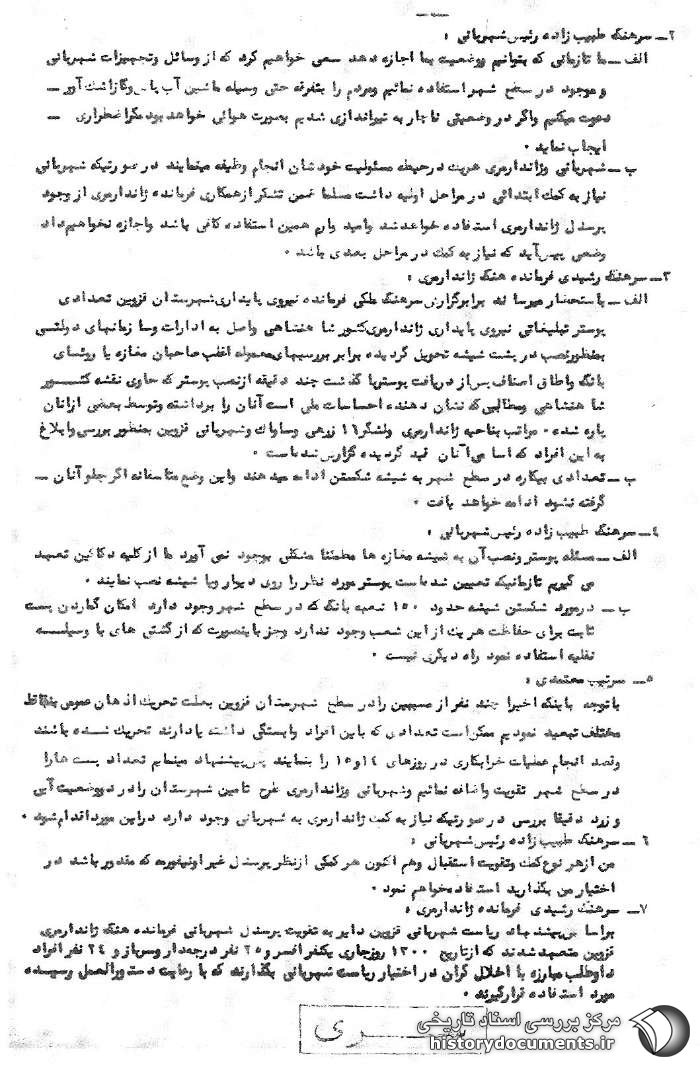 ۲ـ سرهنگ طبیب زاده رئیس شهربانی :
الف ـ ما تازمانی که بتوانیم ووضعیت بما اجازه دهد سعی خواهیم کرد که از وسائل وتجهیزات شهربانی
و موجود در سطح شهر استفاده نمائیم ومردم را بتفرقه حتی وسیله ماشین آب پاس وگازاشک آور ـ
دعوت میکنیم واگر در وضعیتی ناچار به تیراندازی شدیم بصورت هوائی خواهد بود مگر اضطراری ـ
ایجاب نماید .
ب ـ شهربانی وژاندارمری هریک درحیطه مسئولیت خودشان انجام وظیفه مینمایند در صورتیکه شهربانی
نیاز به کمک ابتدائی در مراحل اولیه داشت مسلما ضمن تشکر ازهمکاری فرمانده ژاندارمری از وجود
پرسنل ژاندارمری استفاده خواهد شد وامید وارم همین استفاده کافی باشد واجازه نخواهیم داد
وضعی پیش آید که نیاز به کمک در مراحل بعدی باشد .
۳ـ سرهنگ رشیدی فرمانده هنگ ژاندارمری :
الف ـ باستحضار میرساند برابر گزارش سرهنگ ملکی فرمانده نیروی پایداری شهرستان قزوین تعدادی
پوستر تبلیغاتی نیروی پایداری ژاندارمری کشور شاهنشاهی واصل به ادارات وسازمانهای دولتی
بمنظورنصب در پشت شیشه تحویل گردیده برابر بررسیهای معموله اغلب صاحبان مغازه یا روئسای
بانک واطاق اصناف پس از دریافت پوستر با گذشت چند دقیقه ازنصب پوستر که حاوی نقشه کشور
شاهنشاهی ومطالبی که نشان دهنده احساسات ملی است آنان را برداشته وتوسط بعضی ازانان
پاره شده . مراتب بناحیه ژاندارمری ولشگر ۱۶ زرهی وساواک وشهربانی قزوین بمنظور بررسی وابلاغ
به این افراد که اسامی آنان قید گردیده گزارش شده است .
ب ـ تعدادی بیکاره در سطح شهر به شیشه شکستن ادامه میدهند واین وضع متاسفانه اگر جلو آنان ـ
گرفته نشود ادامه خواهد یافت .
۴ـ سرهنگ طبیب زاده رئیس شهربانی :
الف ـ مسئله پوستر ونصب آن به شیشه مغازه ها مطمئنا مشکلی بوجود نمی آورد ما از کلیه دکاکین تعهد
می گیریم تازمانیکه تعیین شده است پوستر مورد نظر را روی دیوار ویا شیشه نصب نمایند .
ب ـ درمورد شکستن شیشه حدود ۱۵۰ شعبه بانک که در سطح شهر وجود دارد امکان گماردن پست
ثابت برای حفاظت هریک از این شعب وجود ندارد وجز باینصورت که از گشتی های با وسیله
نقلیه استفاده نمود راه دیگری نیست .
۵ـ سرتیپ معتمدی :
باتوجه باینکه اخیرا چند نفر از مسببین رادر سطح شهرستان قزوین بعلت تحریک اذهان عمومی بنقاط
مختلف تبعید نمودیم ممکن است تعدادی که باین افراد وابستگی داشته یا دارند تحریک شده باشند
وقصد انجام عملیات خرابکاری در روزهای ۱۴ و ۱۵ را بنمایند پس پیشنهاد مینمایم تعداد پست هارا
در سطح شهر تقویت واضافه نمائیم وشهربانی وژاندارمری طرح تامین شهرستان را در دووضعیت آبی
و زرد دقیقا بررسی در صورتیکه نیاز به کمک ژاندارمری به شهربانی وجود دارد دراین مورد اقدام شود .
۶ ـ سرهنگ طبیب زاده رئیس شهربانی :
من ازهر نوع کمک وتقویت استقبال وهم اکنون هر کمکی ازنظر پرسنل غیر اونیفورمه که مقدور باشد در
اختیار من بگذارید استفاده خواهم نمود .
۷ـ سرهنگ رشیدی فرمانده ژاندارمری :
براساس پیشنهاد ریاست شهربانی قزوین دایر به تقویت پرسنل شهربانی فرمانده هنگ ژاندارمری
قزوین متعهد شدند که ازتاریخ ۱۳۰۰ روزجاری یکنفر افسر و ۲۵ نفر درجه دار وسرباز و ۲۴ نفر افراد
داوطلب مبارزه با اخلال گران در اختیار ریاست شهربانی بگذارند که با رعایت دستورالعمل رسیده
مورد استفاده قرارگیرند .
سری
مرکز بررسی اسناد تاریخی
historydocuments.ir